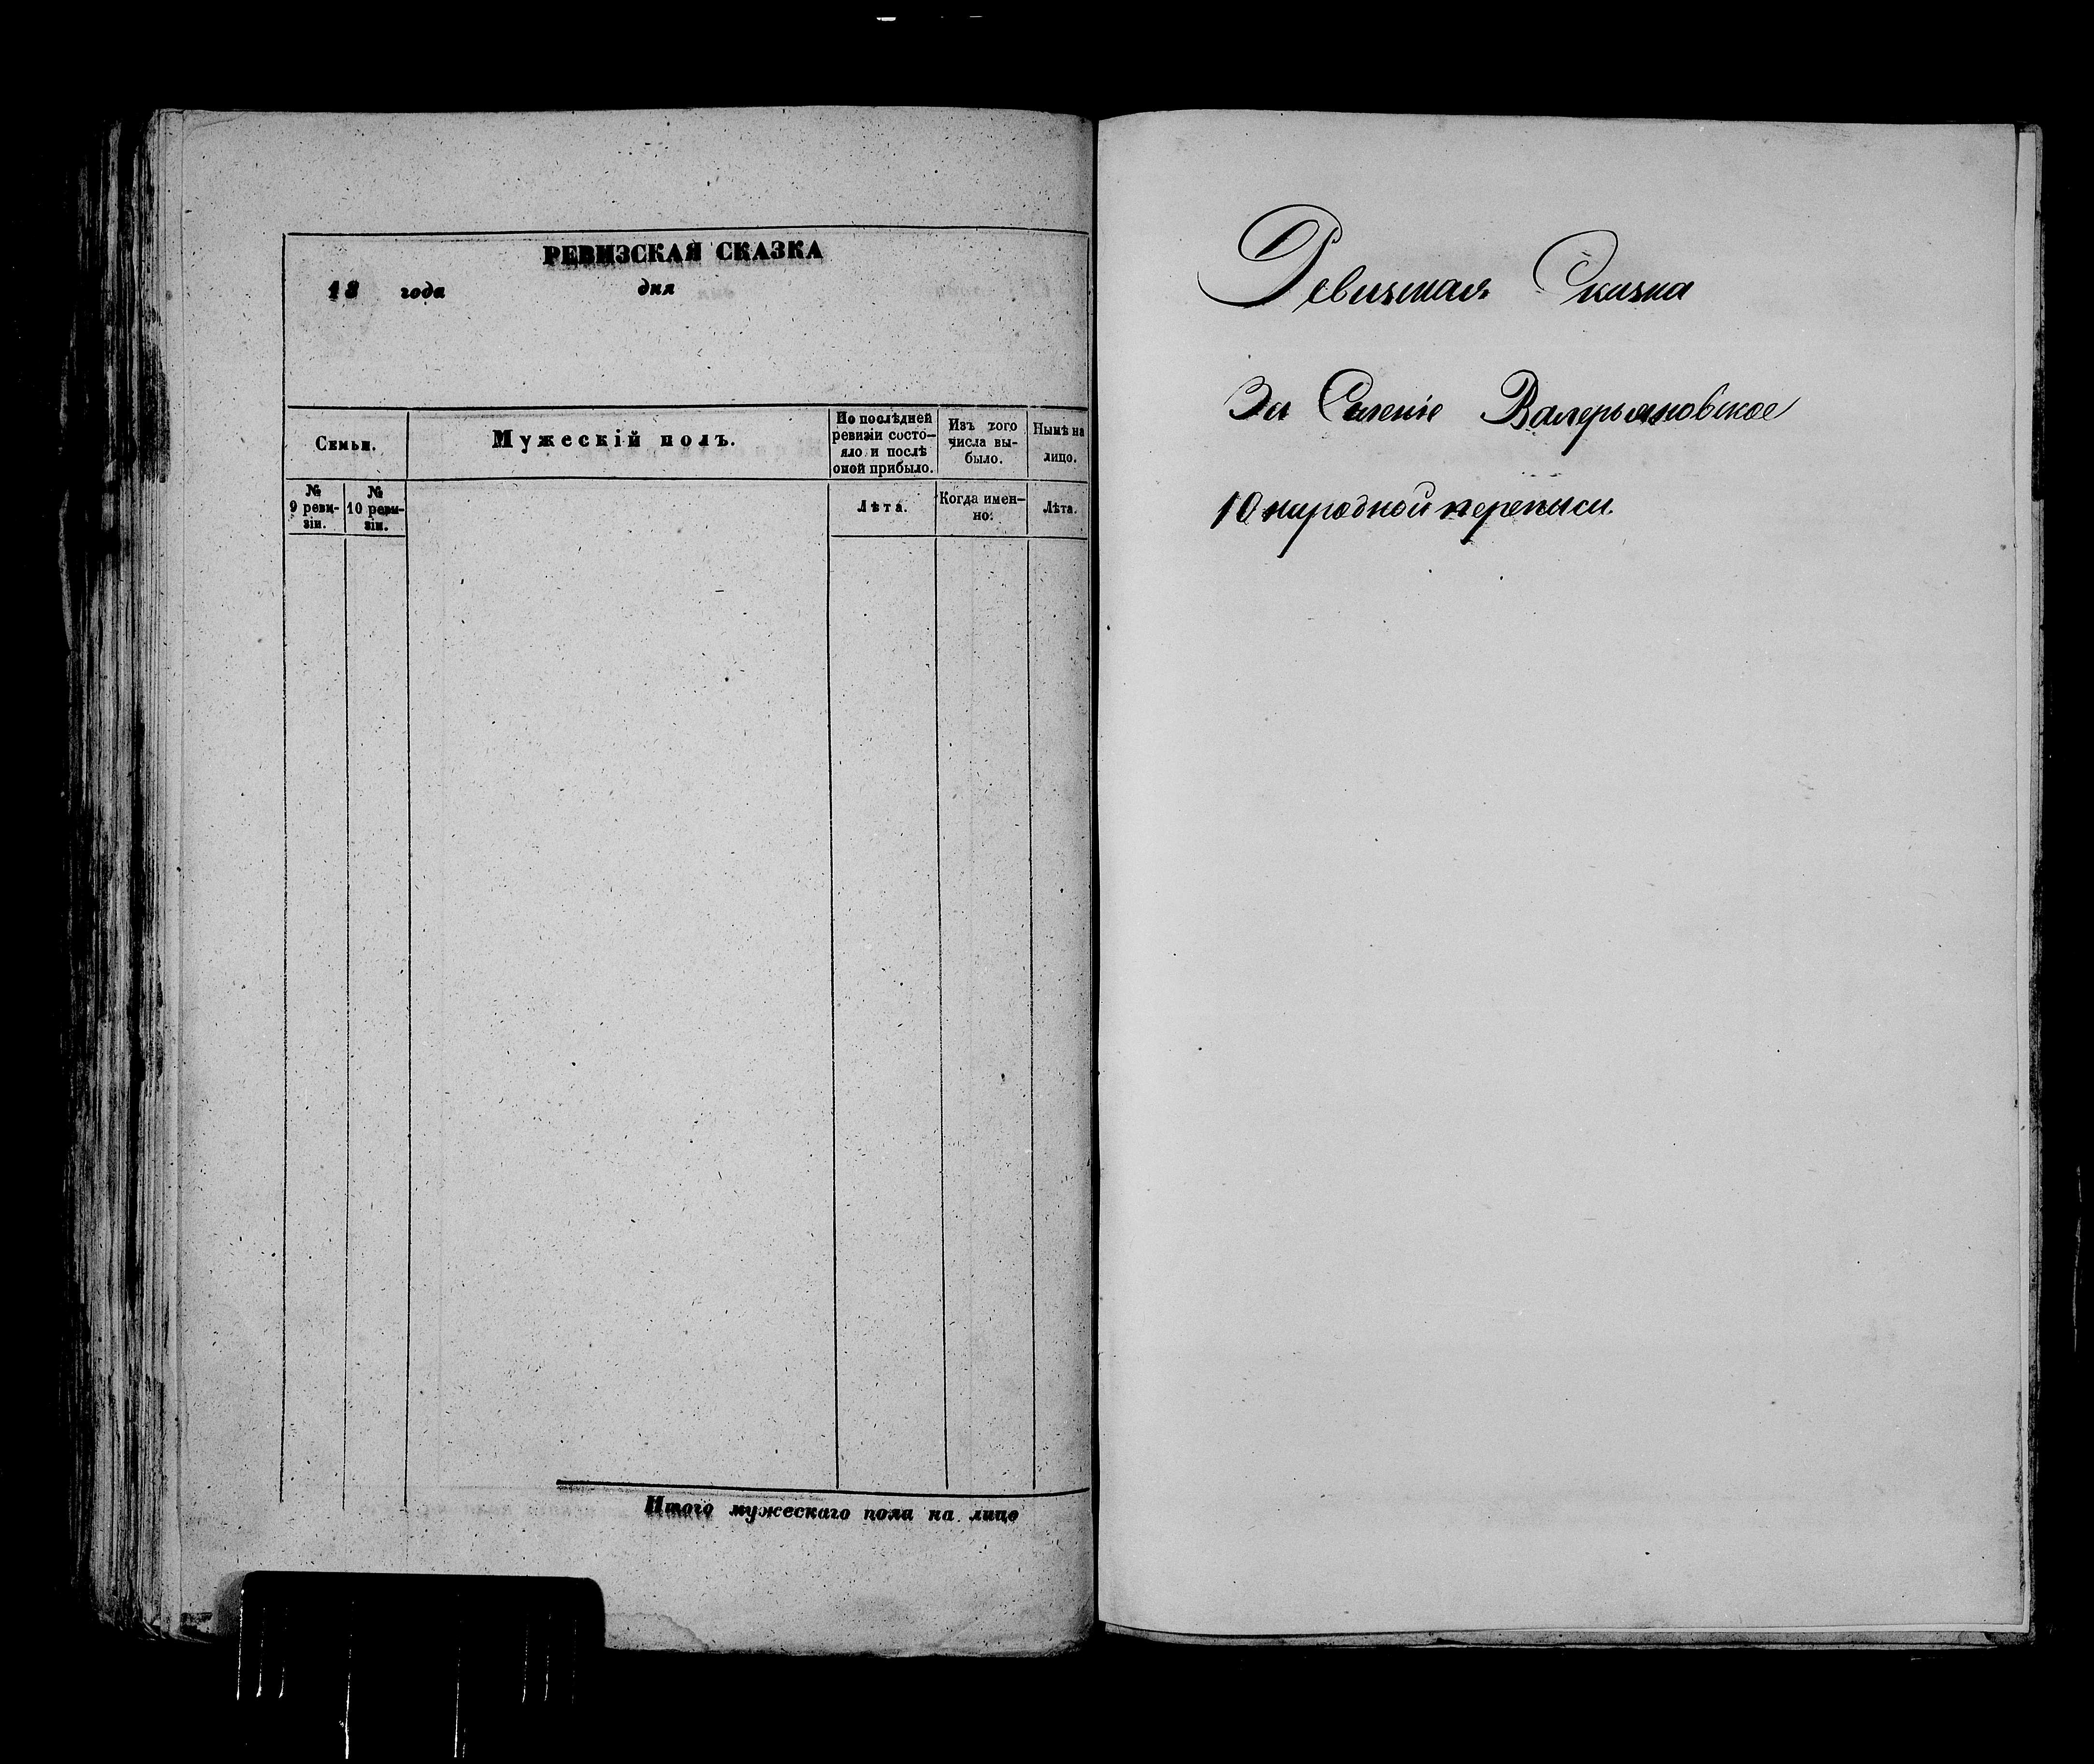 РЕВИЗСКАЯ СКАЗКА
18 года дня
Семьи.
Мужескій полъ.
По послѣдней
ревизіи состо-
яло и послѣ
оной прибыло.
Изъ того
числа вы-
было.
Нынѣ на
лицо.
№
9 реви-
зіи.
№
10 реви-
зіи.
Лѣта.
Когда имен-
но.
Лѣта.
Итого мужескаго пола на лицо
Ревизкая Сказка
За Селеніе Валерьяновское
10 народной переписи.